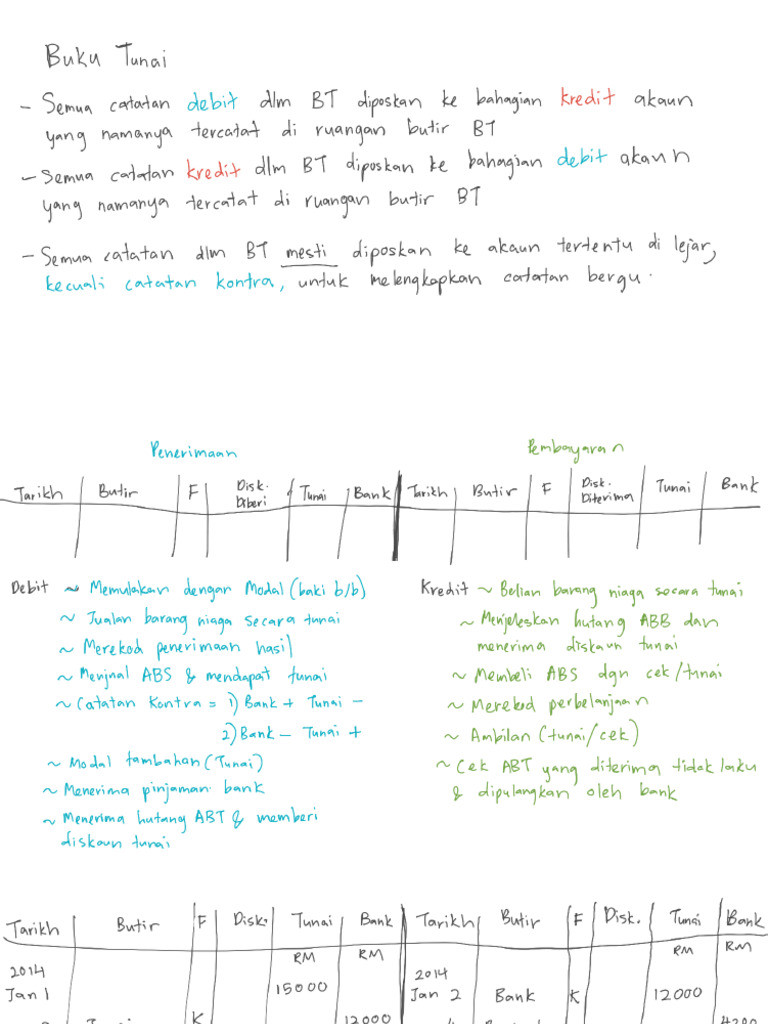 Buku Tunai
- Semua catatan debit dlm BT diposkan ke bahagian kredit akaun
yang namanya tercatat di ruangan butir BT
- Semua catatan kredit dlm BT diposkan ke bahagian debit akaun
yang namanya tercatat di ruangan butir BT
- Semua catatan dlm BT mesti diposkan ke akaun tertentu di lejar,
kecuali catatan kontra, untuk melengkapkan catatan bergu.
Penerimaan Pembayaran
Tarikh Butir F Disk. Diberi Tunai Bank Tarikh Butir F Disk. Diterima Tunai Bank
Debit ~ Memulakan dengan Modal (baki b/b)
~ Jualan barang niaga secara tunai
~ Merekod penerimaan hasil
~ Menjual ABS & mendapat tunai
~ Catatan Kontra = 1) Bank + Tunai -
2) Bank - Tunai +
~ Modal tambahan (Tunai)
~ Menerima pinjaman bank
~ Menerima hutang ABT & memberi
diskaun tunai
Kredit ~ Belian barang niaga secara tunai
~ Menjelaskan hutang ABB dan
menerima diskaun tunai
~ Membeli ABS dgn cek/tunai
~ Merekod perbelanjaan
~ Ambilan (tunai/cek)
~ Cek ABT yang diterima tidak laku
& dipulangkan oleh bank
Tarikh Butir F Disk. Tunai Bank Tarikh Butir F Disk. Tunai Bank
RM RM RM RM
2014 2014
Jan 1 15000 Jan 2 Bank K 12000
K 12000